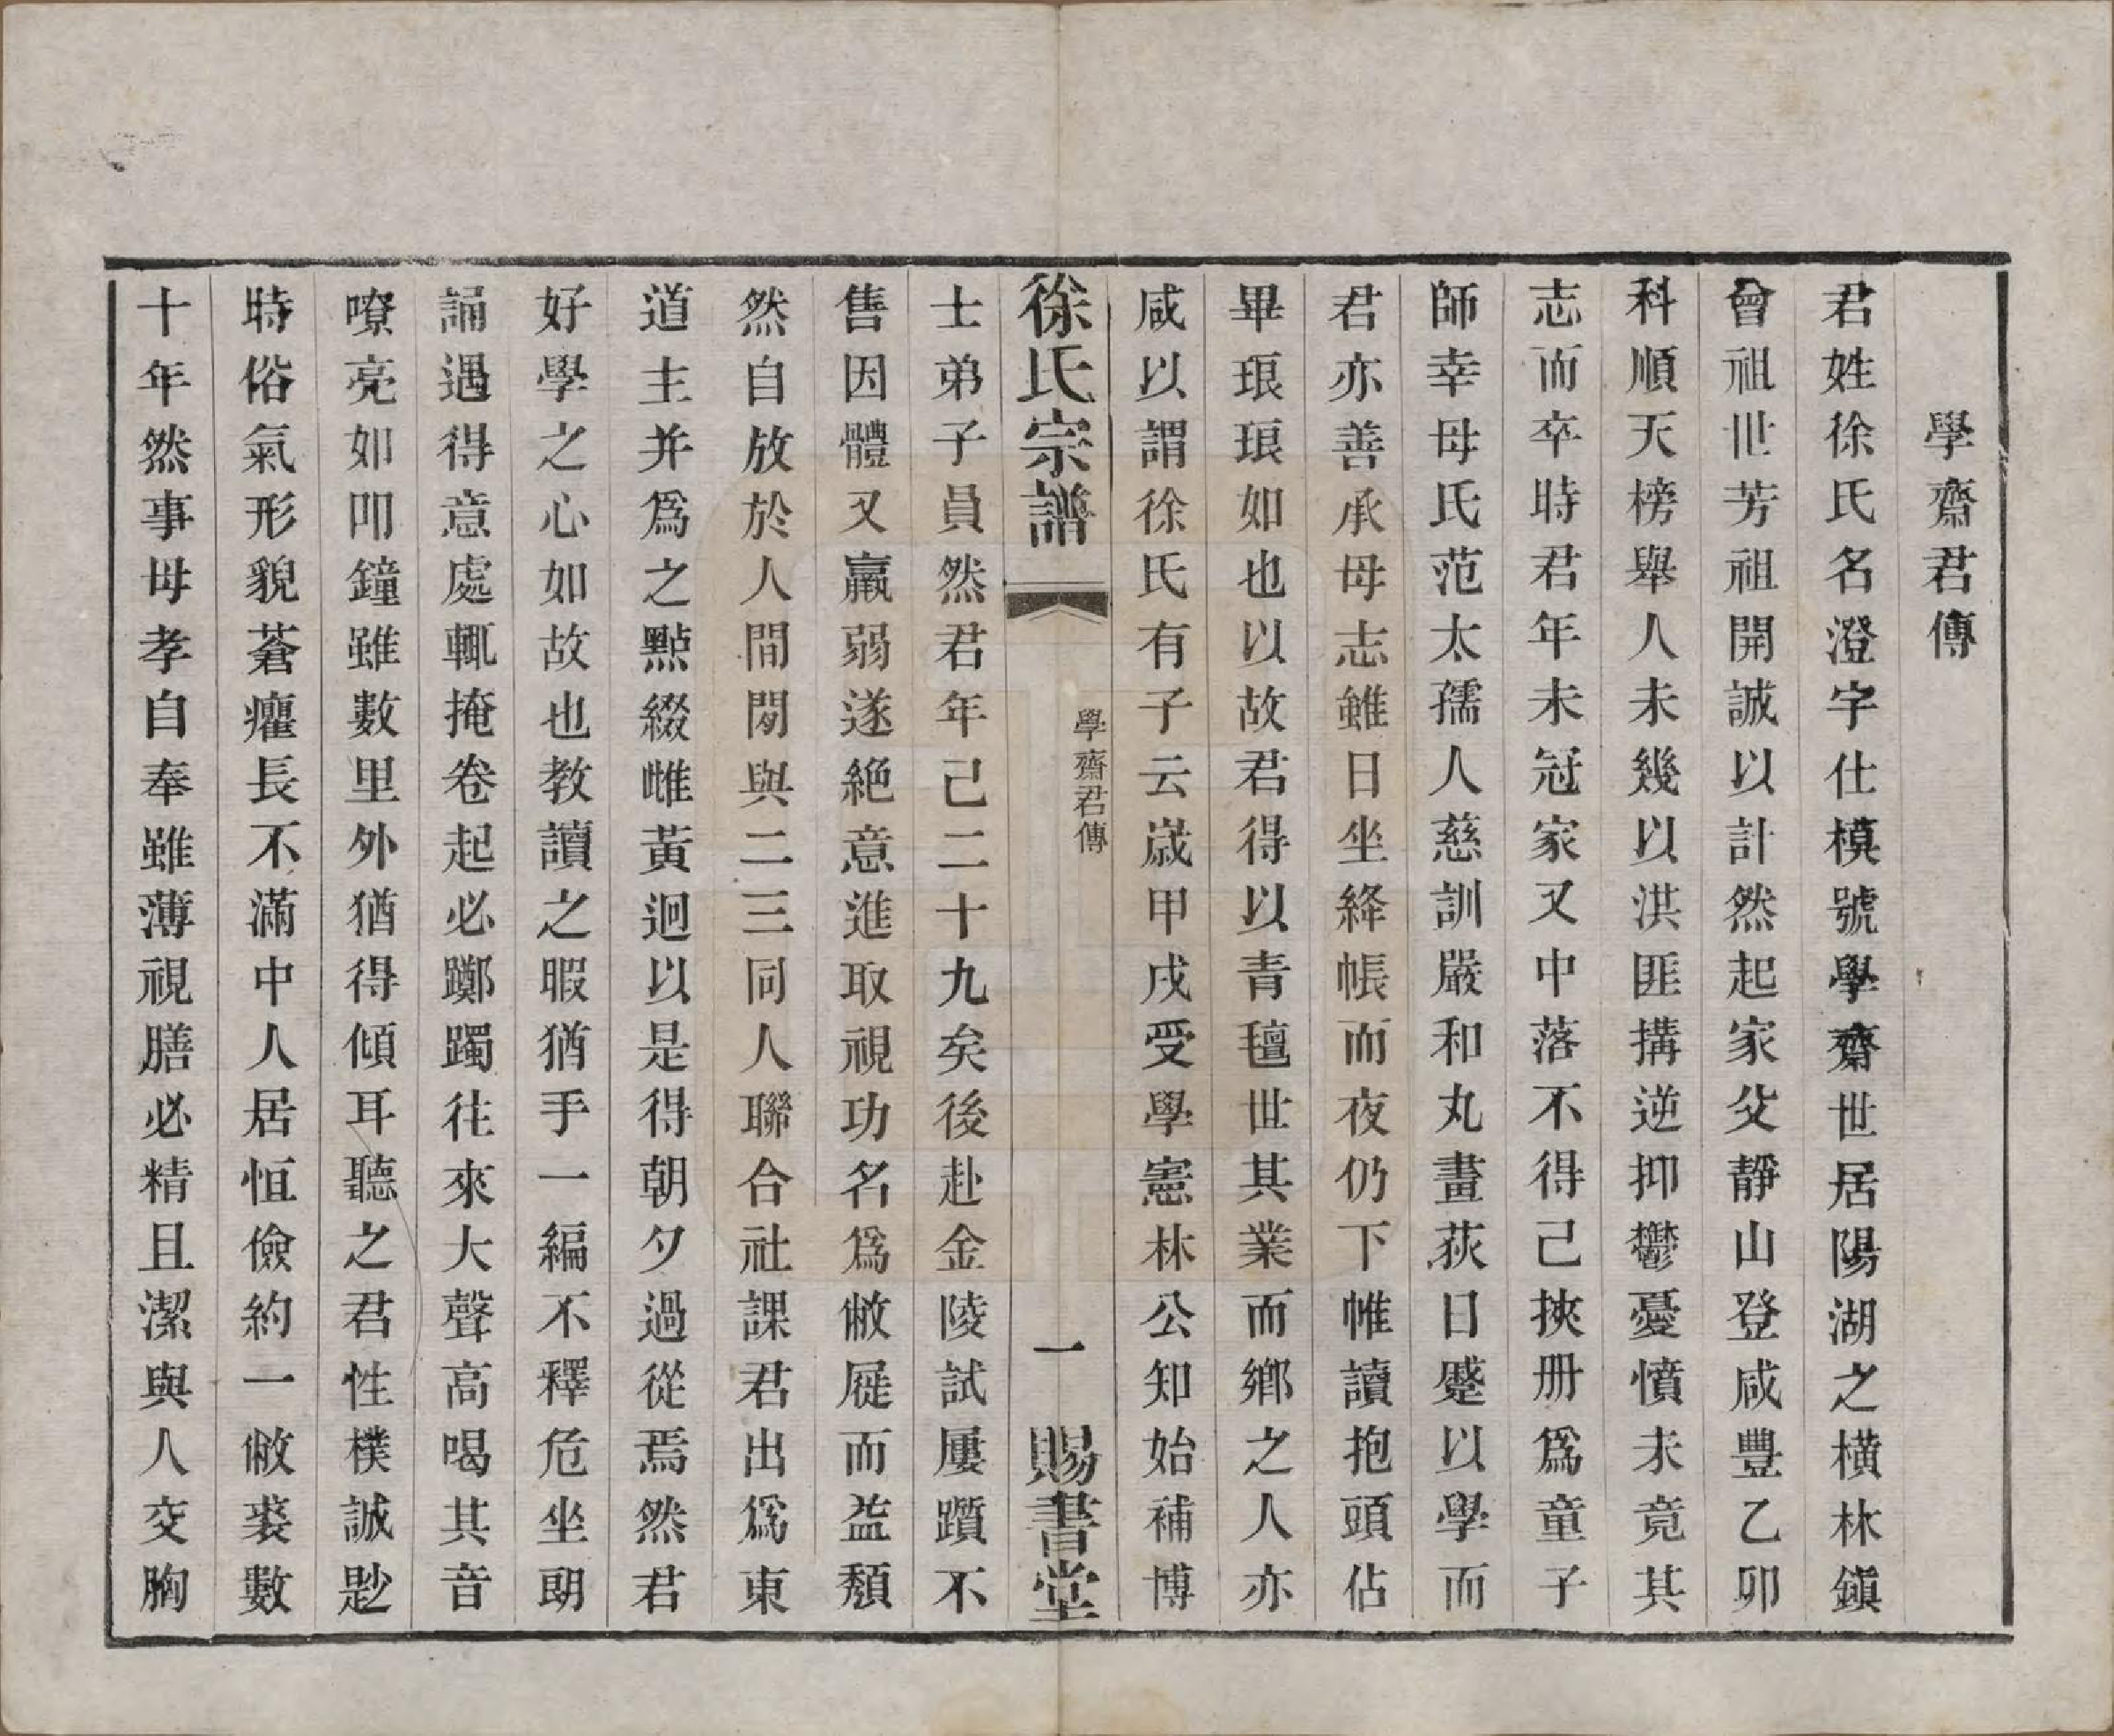 學齋君傳
君姓徐氏名澄字仕模號學齋世居陽湖之橫林鎭
曾祖世芳祖開誠以計然起家父靜山登咸豐乙卯
科順天榜舉人未幾以洪匪搆逆抑鬱憂憤未竟其
志而卒時君年未冠家又中落不得己挾册爲童子
師幸母氏范太孺人慈訓嚴和丸畫荻日蹙以學而
君亦善承母志雖日坐絳帳而夜仍下帷讀抱頭佔
畢琅琅如也以故君得以青氊世其業而鄉之人亦
咸以謂徐氏有子云歲甲戌受學憲林公知始補博
徐氏宗譜
學齋君傳
一
賜書堂
士弟子員然君年己二十九矣後赴金陵試屢躓不
售因體又羸弱遂絕意進取視功名爲敝屣而益頹
然自放於人間閒與二三同人聯合社課君出爲東
道主并爲之點綴雌黃迴以是得朝夕過從焉然君
好學之心如故也教讀之暇猶手一編不釋危坐朗
誦遇得意處輒掩卷起必躑躅往來大聲高喝其音
嘹亮如叩鐘雖數里外猶得傾耳聽之君性樸誠尟
時俗氣形貌蒼癯長不滿中人居恒儉約一敝裘數
十年然事母孝自奉雖薄視膳必精且潔與人交胸